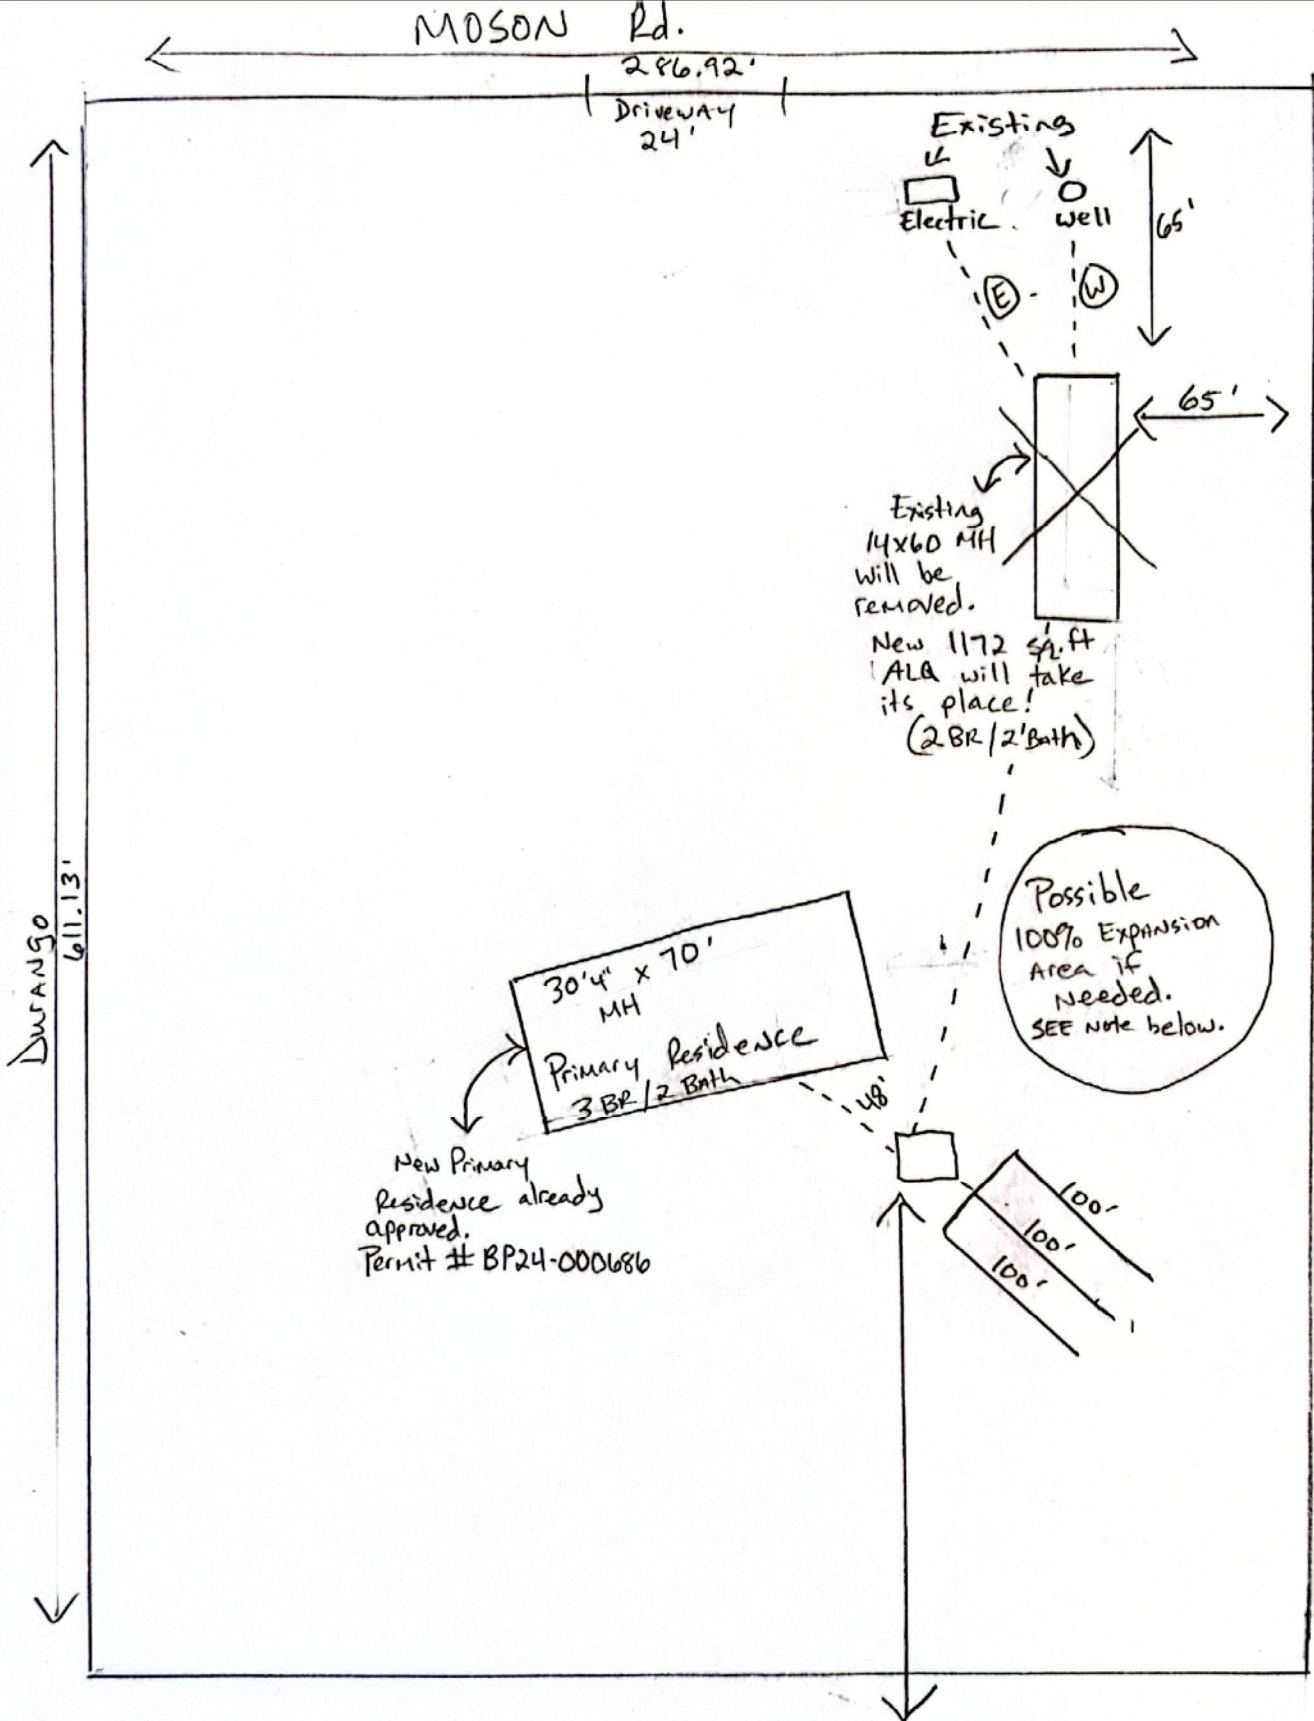 MOSON Rd.
286.92'
Driveway
24'
Existing
Electric
well
65'
E
W
65'
Existing
14x60 MH
will be
removed.
New 1172 sq.ft
ALQ will take
its place!
(2 BR/2 Bath)
Durango
611.13'
Possible
100% Expansion
Area if
Needed.
SEE Note below.
30'4" x 70'
MH
Primary Residence
3 BR/2 Bath
48'
New Primary
Residence already
approved.
Permit # BP24-000686
100'
100'
100'